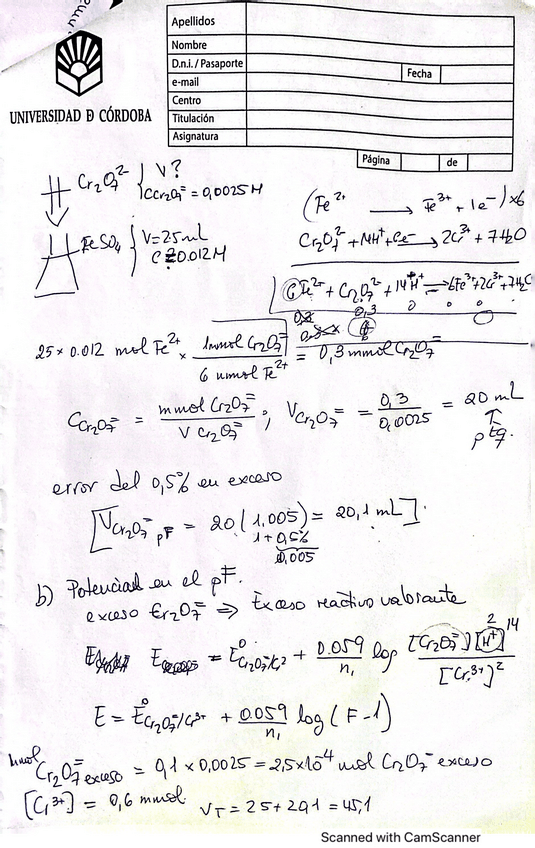 Apellidos
Nombre
D.n.i. / Pasaporte
Fecha
e-mail
Centro
Titulación
Asignatura
Página de
UNIVERSIDAD Ð CÓRDOBA
Cr2O7^2- { V?
C Cr2O7= = 0,0025 M
FeSO4 { V = 25 ml
C = 0.012 M
(Fe^2+ → Fe^3+ + 1e^-) x6
Cr2O7^2- + 14H^+ + 6e^- → 2Cr^3+ + 7H2O
6Fe^2+ + Cr2O7^2- + 14H^+ = 6Fe^3+ + 2Cr^3+ + 7H2O
0,3 0,3
25 x 0.012 mol Fe^2+ x 1mmol Cr2O7= / 6 mmol Fe^2+ = 0,3 mmol Cr2O7=
C Cr2O7= = mmol Cr2O7= / V Cr2O7= ; V Cr2O7= = 0,3 / 0,0025 = 20 mL
↑
p tq.
error del 0,5% en exceso
[V Cr2O7= pF = 20 (1,005) = 20,1 mL]
1 + 0,5%
0,005
b) Potencial en el pF.
exceso Cr2O7= ⇒ Exceso reactivo valorante
E = E^0 Cr2O7=/Cr^3+ + 0.059 / n1 log [Cr2O7=][H^+]^14 / [Cr^3+]^2
2
E = E^0 Cr2O7=/Cr^3+ + 0.059 / n1 log (F-1)
mmol Cr2O7= exceso = 0,1 x 0,0025 = 2,5x10^-4 mol Cr2O7= exceso
[Cr^3+] = 0,6 mmol VT = 25 + 20,1 = 45,1
Scanned with CamScanner